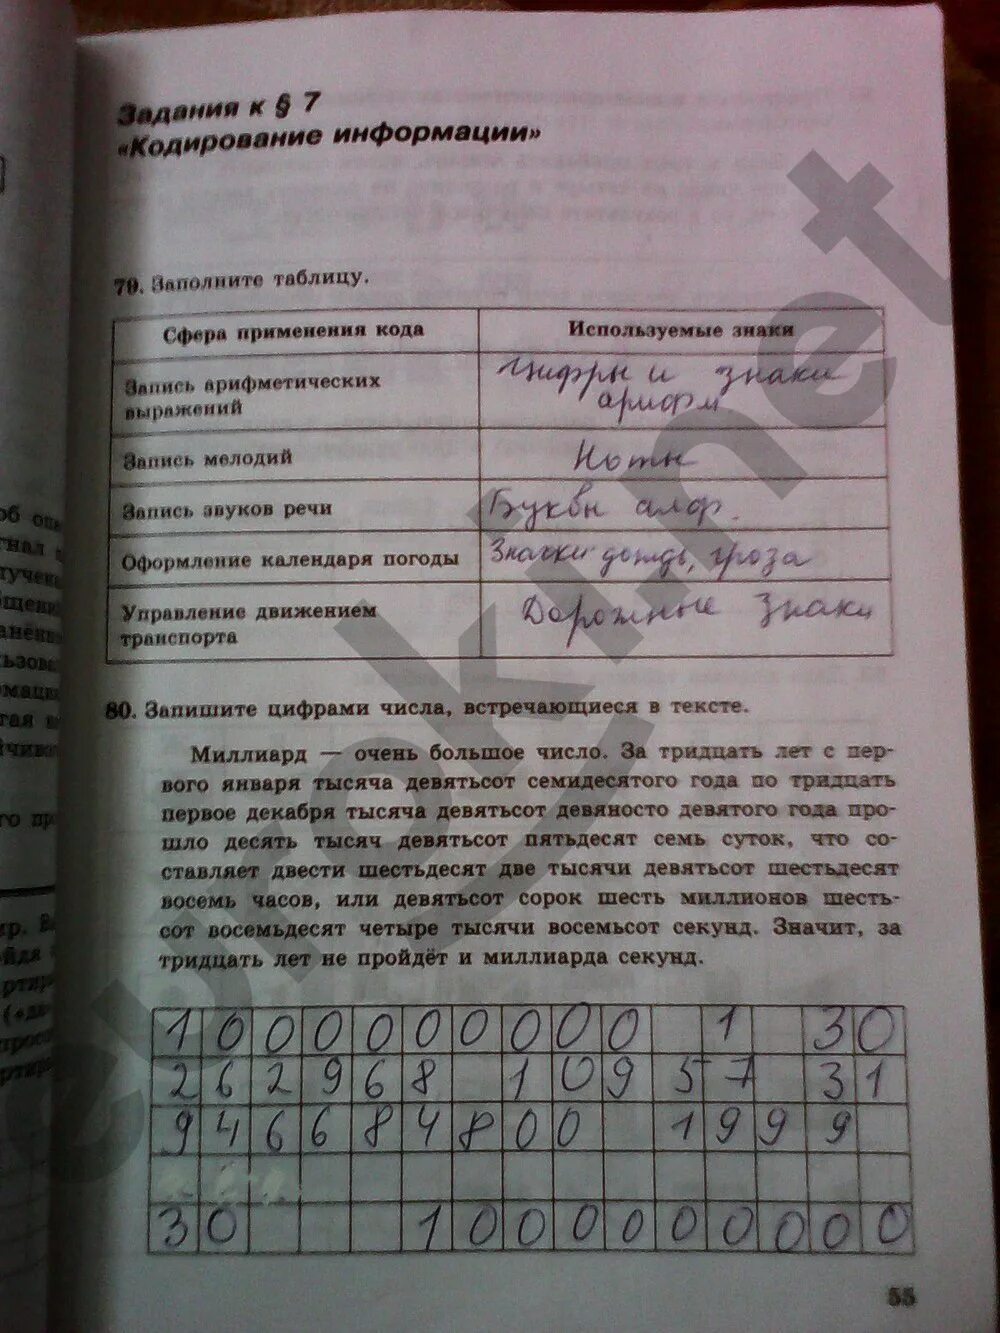 Задания к § 7
«Кодирование информации»
79. Заполните таблицу.
Сфера применения кода
Используемые знаки
Запись арифметических
выражений
Цифры и знаки
арифм
Запись мелодий
Ноты
Запись звуков речи
Буквы алф.
Оформление календаря погоды
Значки дождь, гроза
Управление движением
транспорта
Дорожные знаки
80. Запишите цифрами числа, встречающиеся в тексте.
Миллиард — очень большое число. За тридцать лет с пер-
вого января тысяча девятьсот семидесятого года по тридцать
первое декабря тысяча девятьсот девяносто девятого года про-
шло десять тысяч девятьсот пятьдесят семь суток, что со-
ставляет двести шестьдесят две тысячи девятьсот шестьдесят
восемь часов, или девятьсот сорок шесть миллионов шесть-
сот восемьдесят четыре тысячи восемьсот секунд. Значит, за
тридцать лет не пройдёт и миллиарда секунд.
1000000000 1 30
262968 10957 31
946684800 1999
30 1000000000
55
euroki.net